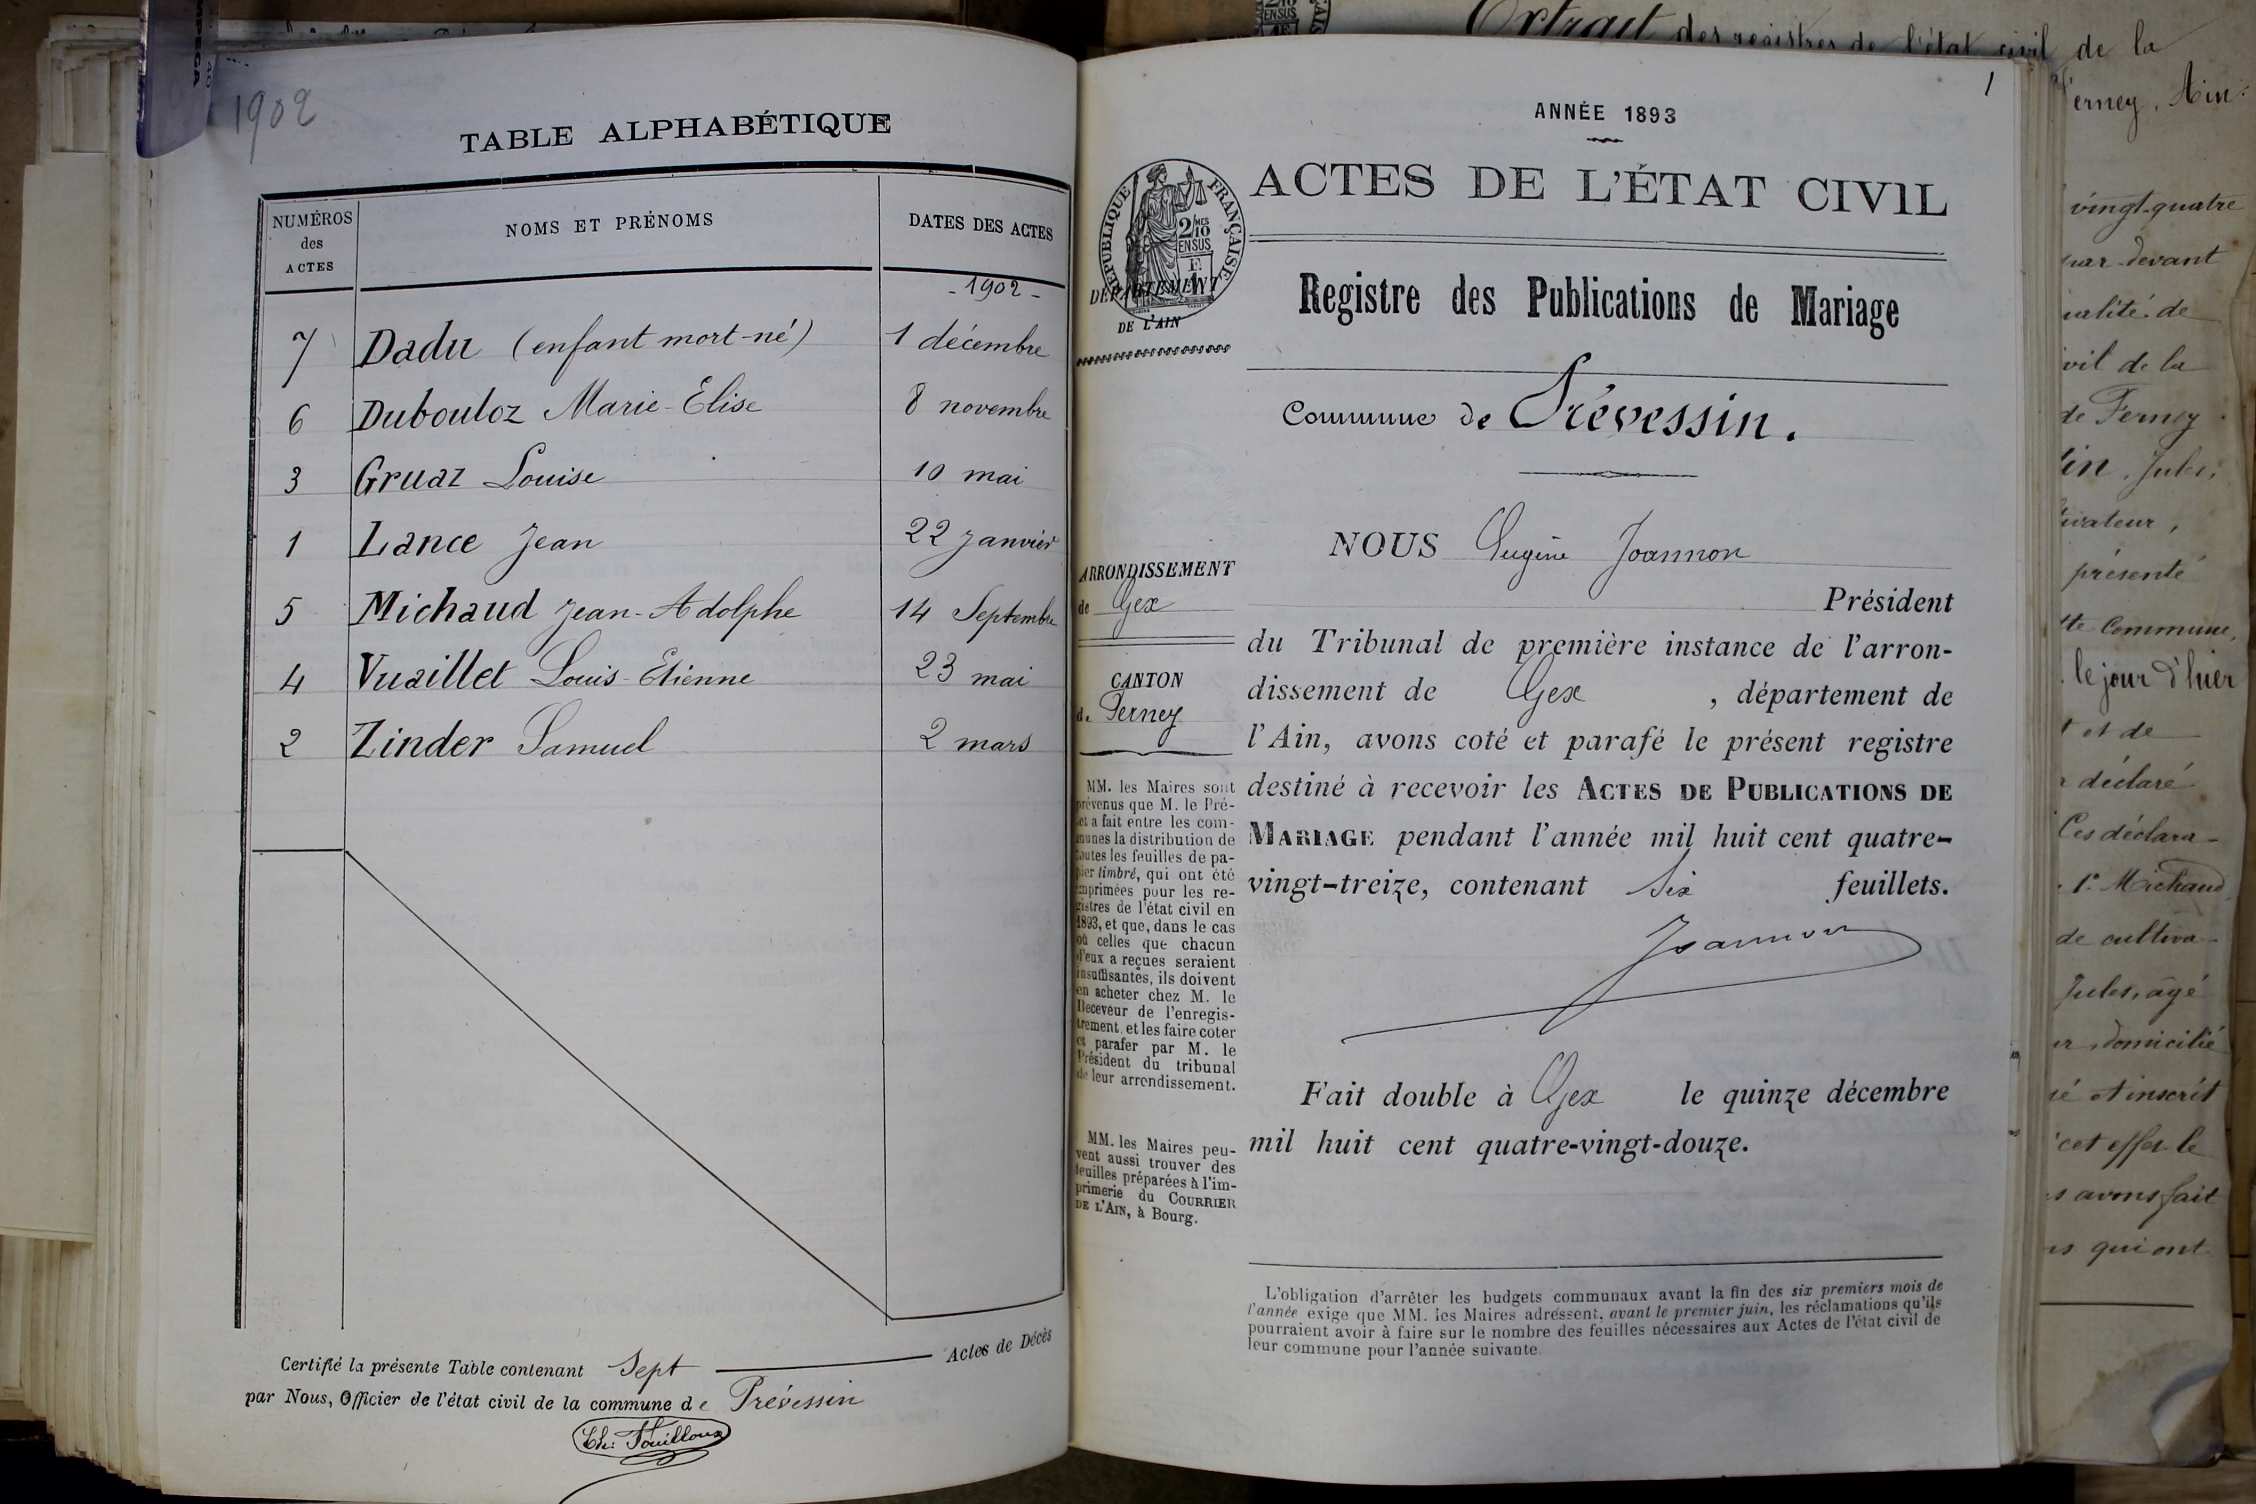 1902
TABLE ALPHABÉTIQUE
NUMÉROS des ACTES
NOMS ET PRÉNOMS
DATES DES ACTES
- 1902 -
7 Dadu (enfant mort-né) 1 décembre
6 Dubouloz Marie-Elise 8 novembre
3 Gruaz Louise 10 mai
1 Lance Jean 22 janvier
5 Michaud Jean-Adolphe 14 Septembre
4 Vuaillet Louis-Etienne 23 mai
2 Zinder Samuel 2 mars
Certifié la présente Table contenant Sept Actes de Décès
par Nous, Officier de l'état civil de la commune de Prévessin
Ch: Fouilloux
1
ANNÉE 1893
ACTES DE L'ÉTAT CIVIL
RÉPUBLIQUE FRANÇAISE
2/10 MES
EN SUS
DÉPARTEMENT
DE L'AIN
Registre des Publications de Mariage
Commune de Prévessin.
ARRONDISSEMENT
de Gex
CANTON
de Ferney
MM. les Maires sont
prévenus que M. le Pré-
fet a fait entre les com-
munes la distribution de
toutes les feuilles de pa-
pier timbré, qui ont été
imprimées pour les re-
gistres de l'état civil en
1893, et que, dans le cas
où celles que chacun
d'eux a reçues seraient
insuffisantes, ils doivent
en acheter chez M. le
Receveur de l'enregis-
trement, et les faire coter
et parafer par M. le
Président du tribunal
de leur arrondissement.
MM. les Maires peu-
vent aussi trouver des
feuilles préparées à l'im-
primerie du COURRIER
DE L'AIN, à Bourg.
NOUS Eugène Joannon
Président
du Tribunal de première instance de l'arron-
dissement de Gex, département de
l'Ain, avons coté et parafé le présent registre
destiné à recevoir les ACTES DE PUBLICATIONS DE
MARIAGE pendant l'année mil huit cent quatre-
vingt-treize, contenant Six feuillets.
Joannon
Fait double à Gex le quinze décembre
mil huit cent quatre-vingt-douze.
L'obligation d'arrêter les budgets communaux avant la fin des six premiers mois de
l'année exige que MM. les Maires adressent, avant le premier juin, les réclamations qu'ils
pourraient avoir à faire sur le nombre des feuilles nécessaires aux Actes de l'état civil de
leur commune pour l'année suivante.
Extrait des registres de l'état civil de la
Ferney, Ain.
vingt-quatre
par-devant
de
de la
de Ferney
Jules,
présenté
commune,
le jour d'hier
et de
déclaré
Ces déclara-
1° Michaud
de cultiva-
Jules, âgé
domicilié
et inscrit
cet effet le
avons fait
qui ont